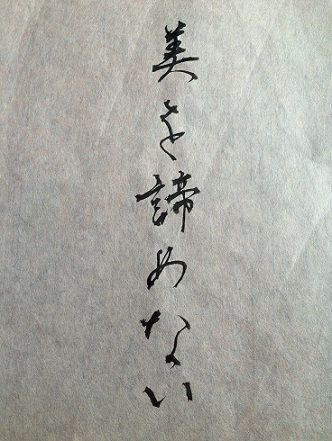 美を諦めない